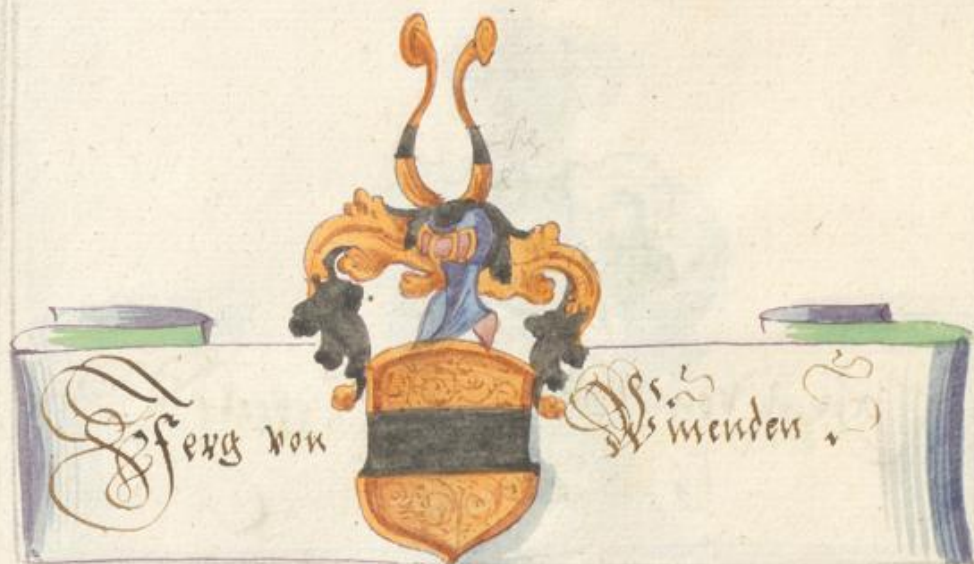 Jerg von Winenden.